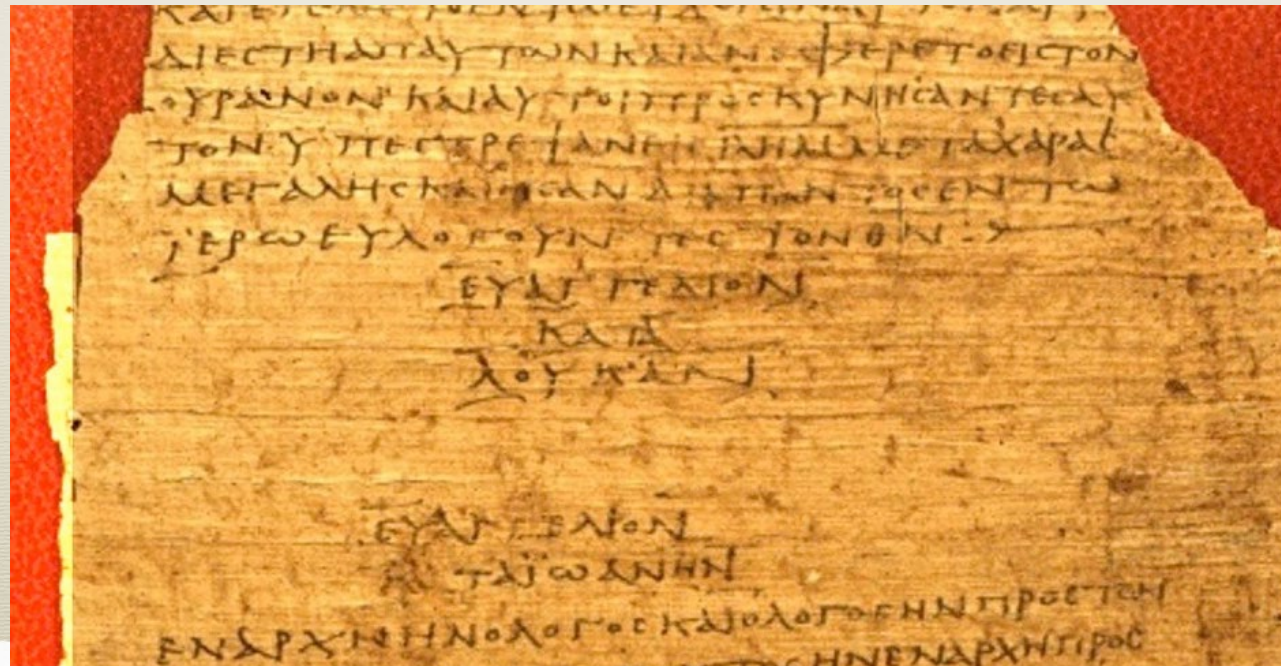 ΔΙΕϹΤΗΑΠΑΥΤΩΝΚΑΙΑΝΕΦΕΡΕΤΟΕΙϹΤΟΝ
ΟΥΡΑΝΟΝΚΑΙΑΥΤΟΙΠΡΟϹΚΥΝΗϹΑΝΤΕϹΑΥ
ΤΟΝΥΠΕϹΤΡΕΨΑΝΕΙϹ ΜΕΤΑΧΑΡΑϹ
ΜΕΓΑΛΗϹΚΑΙΗϹΑΝΔΙΑΠΑΝΤΟϹΕΝΤΩ
ΪΕΡΩΕΥΛΟΓΟΥΝΤΕϹΤΟΝΘΝ:>
ΕΥΑΓΓΕΛΙΟΝ
ΚΑΤΑ
ΛΟΥΚΑΝ
ΕΥΑΓΓΕΛΙΟΝ
ΚΑΤΑΪΩΑΝΗΝ
ΕΝΑΡΧΗΗΝΟΛΟΓΟϹΚΑΙΟΛΟΓΟϹΗΝΠΡΟϹΤΟΝ
ΗΝΕΝΑΡΧΗΠΡΟϹ